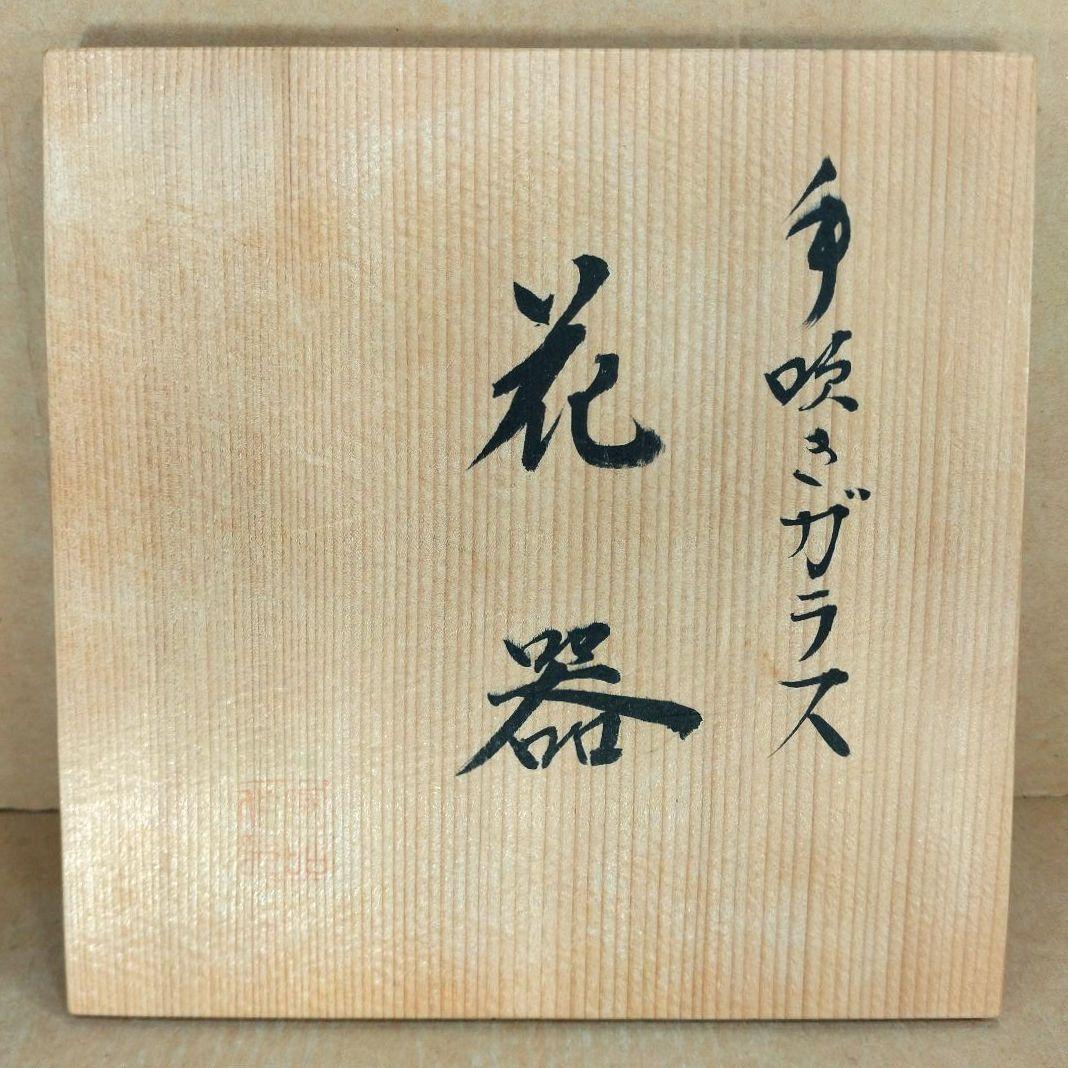 手吹きガラス
花器